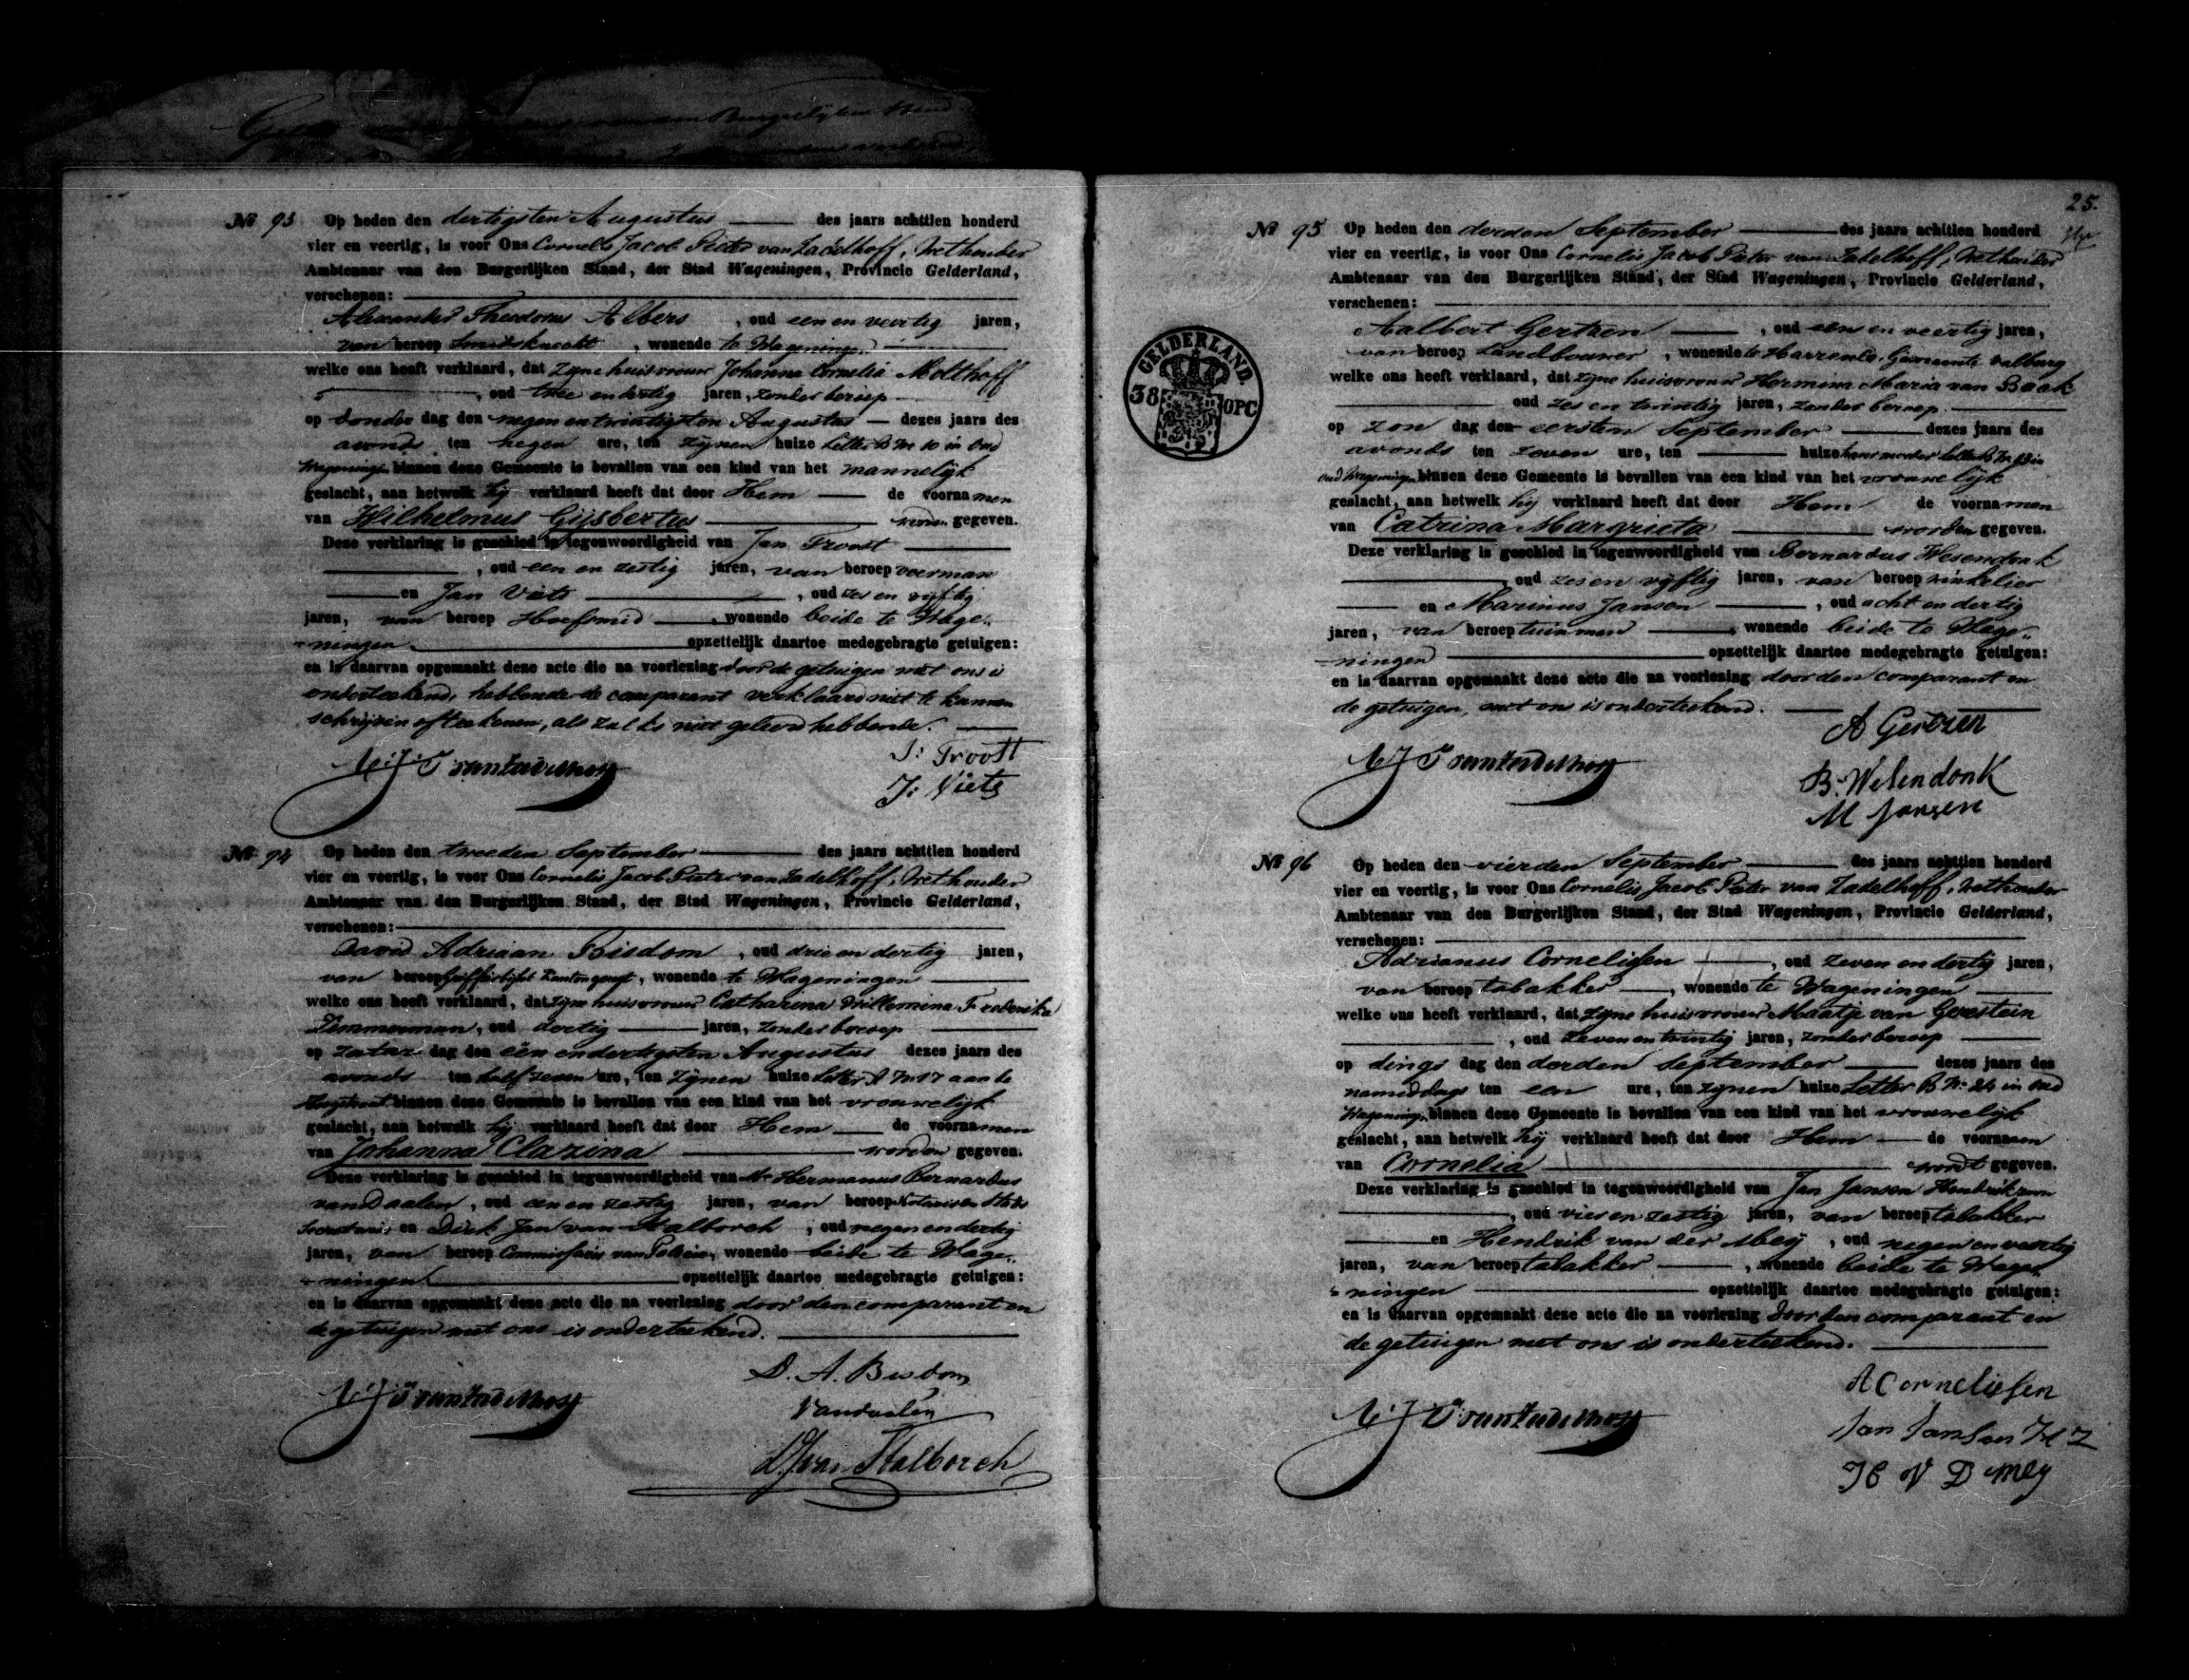 Nº 93 Op heden den dertigsten Augustus des jaars achttien honderd
vier en veertig, is voor Ons Cornelis Jacob Pieter van Zadelhoff, Wethouder
Ambtenaar van den Burgerlijken Stand, der Stad Wageningen, Provincie Gelderland,
verschenen:
Alexander Theodorus Albers, oud een en veertig jaren,
van beroep Smidsknecht, wonende te Wageningen
welke ons heeft verklaard, dat zijne huisvrouw Johanna Cornelia Molthoff
, oud twee en dertig jaren, zonder beroep
op donder dag den negen en twintigsten Augustus dezes jaars des
avonds ten negen ure, ten zijnen huize Letter B Nr 10 in Oud
Wageningen binnen deze Gemeente is bevallen van een kind van het mannelijk
geslacht, aan hetwelk hij verklaard heeft dat door Hem de voornamen
van Wilhelmus Gijsbertus worden gegeven.
Deze verklaring is geschied in tegenwoordigheid van Jan Troost
, oud een en zestig jaren, van beroep voerman
en Jan Viets, oud zes en vijftig
jaren, van beroep Hoefsmid, wonende beide te Wage-
ningen opzettelijk daartoe medegebragte getuigen:
en is daarvan opgemaakt deze acte die na voorlezing door de getuigen met ons is
onderteekend, hebbende de comparant verklaard niet te kunnen
schrijven of teekenen, als zulks niet geleerd hebbende.
C.J.P. van Zadelhoff
J: Troost
J: Viets
Nº 94 Op heden den tweeden September des jaars achttien honderd
vier en veertig, is voor Ons Cornelis Jacob Pieter van Zadelhoff, Wethouder
Ambtenaar van den Burgerlijken Stand, der Stad Wageningen, Provincie Gelderland,
verschenen:
David Adriaan Bisdom, oud drie en dertig jaren,
van beroep Griffier bij het Kantongeregt, wonende te Wageningen
welke ons heeft verklaard, dat zijne huisvrouw Catharina Willemina Frederika
Zimmerman, oud dertig jaren, zonder beroep
op zatur dag den één en dertigsten Augustus dezes jaars des
avonds ten half zeven ure, ten zijnen huize Letter A Nr 17 aan de
Hoogstraat binnen deze Gemeente is bevallen van een kind van het vrouwelijk
geslacht, aan hetwelk hij verklaard heeft dat door Hem de voornamen
van Johanna Clazina worden gegeven.
Deze verklaring is geschied in tegenwoordigheid van Mr Hermanus Bernardus
van Daalen, oud een en zestig jaren, van beroep Notaris en Stads
Secretaris, en Dirk Jan van Stalborch, oud negen en dertig
jaren, van beroep Commissaris van Policie, wonende beide te Wage-
ningen opzettelijk daartoe medegebragte getuigen:
en is daarvan opgemaakt deze acte die na voorlezing door den comparant en
de getuigen met ons is onderteekend.
C.J.P. van Zadelhoff
D. A. Bisdom
Vandaalen
D.J. van Stalborch
25.
Nº 95 Op heden den derden September des jaars achttien honderd
vier en veertig, is voor Ons Cornelis Jacob Pieter van Zadelhoff, Wethouder
Ambtenaar van den Burgerlijken Stand, der Stad Wageningen, Provincie Gelderland,
verschenen:
Aalbert Gertzen, oud een en veertig jaren,
van beroep Landbouwer, wonende te Harrenlo, Gemeente Valburg
welke ons heeft verklaard, dat zijne huisvrouw Hermina Maria van Baak
oud zes en twintig jaren, zonder beroep
op zon dag den eersten September dezes jaars des
avonds ten zeven ure, ten huize harer moeder Letter B Nr in
oud Wageningen binnen deze Gemeente is bevallen van een kind van het vrouwelijk
geslacht, aan hetwelk hij verklaard heeft dat door Hem de voornamen
van Catrina Margrieta worden gegeven.
Deze verklaring is geschied in tegenwoordigheid van Bernardus Wesendonk
, oud zes en vijftig jaren, van beroep winkelier
en Marinus Jansen, oud acht en dertig
jaren, van beroep tuinman, wonende beide te Wage-
ningen opzettelijk daartoe medegebragte getuigen:
en is daarvan opgemaakt deze acte die na voorlezing door den comparant en
de getuigen, met ons is onderteekend.
C.J.P. van Zadelhoff
A Gertzen
B. Wesendonk
M Jansen
GELDERLAND.
38 OPC
Nº 96 Op heden den vierden September des jaars achttien honderd
vier en veertig, is voor Ons Cornelis Jacob Pieter van Zadelhoff, Wethouder
Ambtenaar van den Burgerlijken Stand, der Stad Wageningen, Provincie Gelderland,
verschenen:
Adrianus Cornelissen, oud zeven en dertig jaren,
van beroep tabakker, wonende te Wageningen
welke ons heeft verklaard, dat zijne huisvrouw Maatje van Geerestein
, oud zeven en twintig jaren, zonder beroep
op dings dag den derden September dezes jaars des
namiddags ten een ure, ten zijnen huize Letter B Nr 24 in Oud
Wageningen binnen deze Gemeente is bevallen van een kind van het vrouwelijk
geslacht, aan hetwelk hij verklaard heeft dat door Hem de voornaam
van Cornelia wordt gegeven.
Deze verklaring is geschied in tegenwoordigheid van Jan Jansen Hendrikzoon
, oud vier en zestig jaren, van beroep tabakker
en Hendrik van der Meij, oud negen en veertig
jaren, van beroep tabakker, wonende beide te Wage-
ningen opzettelijk daartoe medegebragte getuigen:
en is daarvan opgemaakt deze acte die na voorlezing door den comparant en
de getuigen met ons is onderteekend.
C.J.P. van Zadelhoff
A Cornelissen
Jan Jansen H Z
H V D Meij